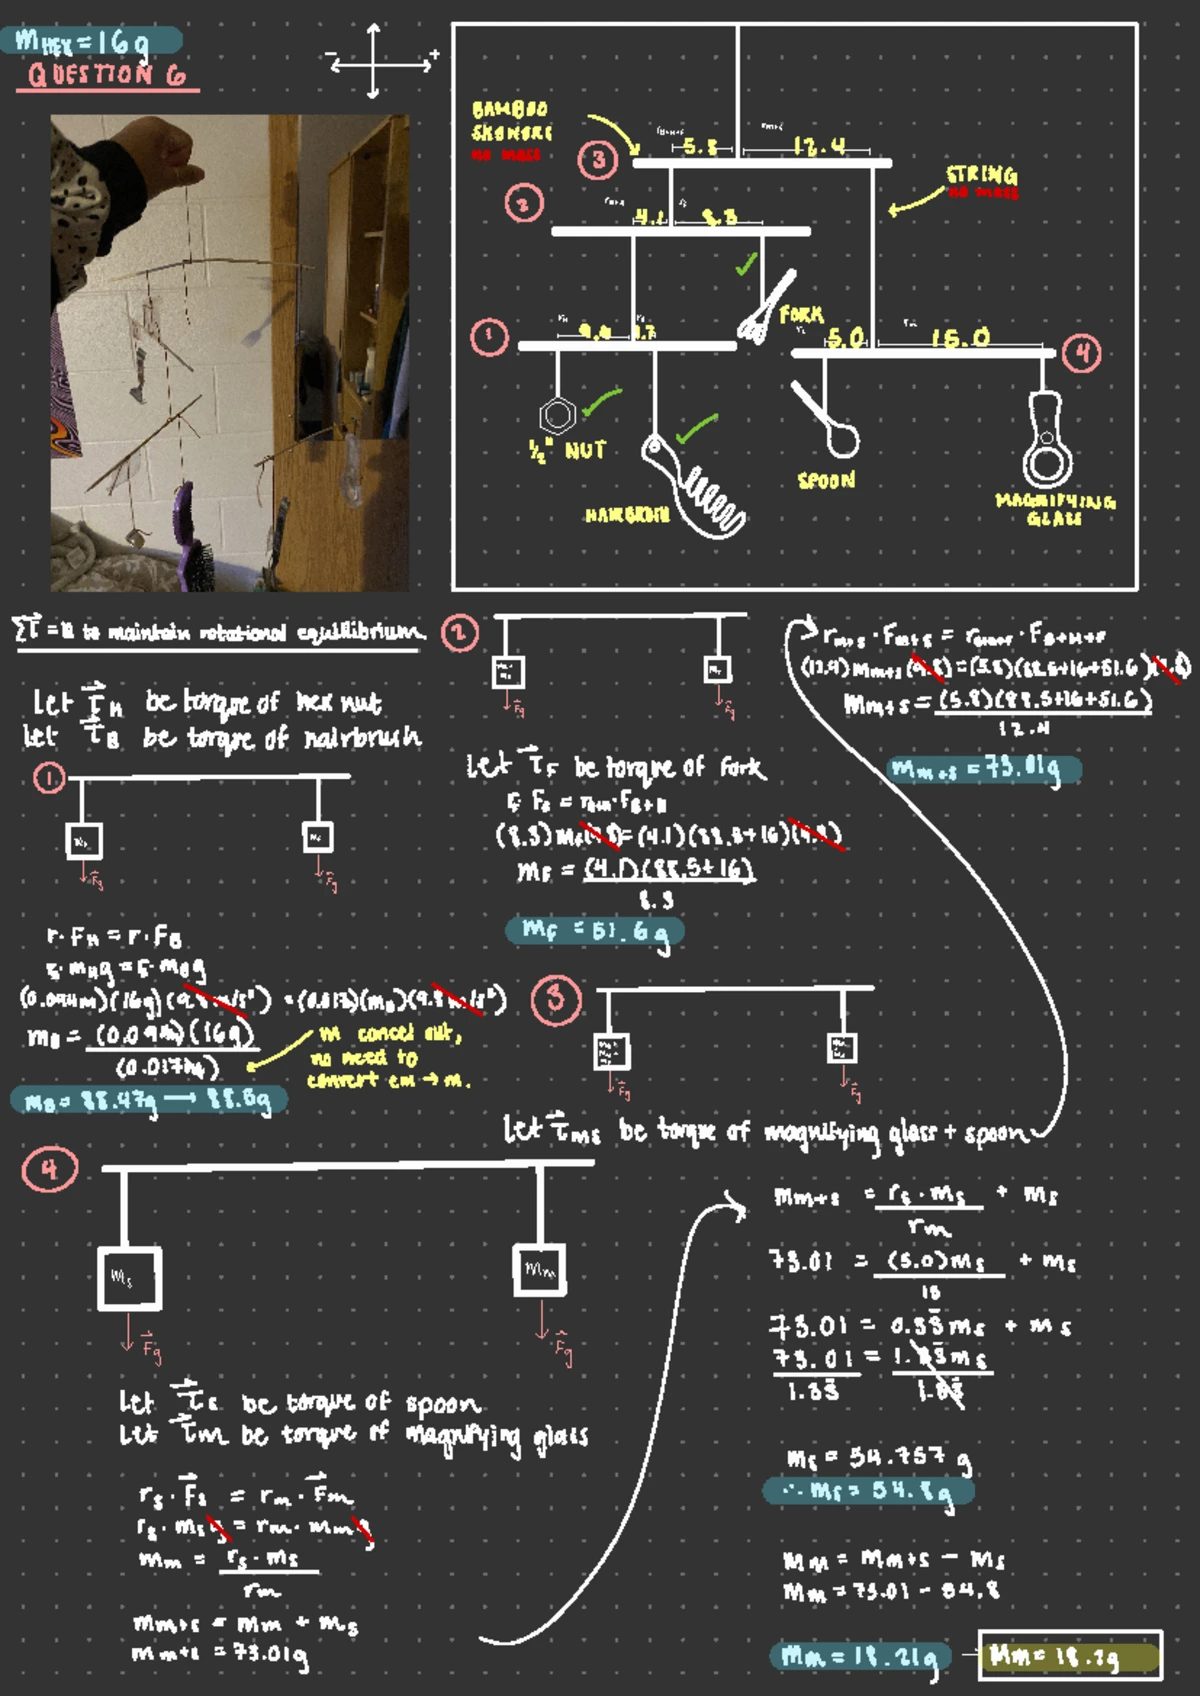 mHEX = 16g
QUESTION 6
- +
BAMBOO
SKEWERS
NO MASS
3
5.8 12.4
STRING
NO MASS
2
4.1 8.3
FORK
1
9.4 1.7
5.0 15.0
4
1/2" NUT
HAIRBRUSH
SPOON
MAGNIFYING
GLASS
to maintain rotational equilibrium
Let τH be torque of hex nut
Let τB be torque of hairbrush
1
Fg Fg
r·FH = r·FB
r·mHg = r·mBg
(0.094m)(16g)(9.8m/s²) = (0.017)(mB)(9.8m/s²)
mB = (0.094m)(16g)
(0.017m)
m cancel out,
no need to
convert cm → m.
mB = 88.47g → 88.5g
2
Fg Fg
Let τF be torque of fork
(8.3)mF(9.8) = (4.1)(88.5+16)(9.8)
mF = (4.1)(88.5+16)
8.3
mF = 51.6g
3
Fg Fg
Let τMS be torque of magnifying glass + spoon
(12.4)mm+s(9.8) = (5.8)(88.5+16+51.6)(9.8)
mm+s = (5.8)(88.5+16+51.6)
12.4
mm+s = 73.01g
4
ms mm
Fg Fg
Let τs be torque of spoon
Let τm be torque of magnifying glass
rs·Fs = rm·Fm
rs·msg = rm·mmg
mm = rs·ms
rm
mm+s = mm + ms
mm+s = 73.01g
mm+s = rs·ms + ms
rm
73.01 = (5.0)ms + ms
15
73.01 = 0.33ms + ms
73.01 = 1.33ms
1.33 1.33
ms = 54.757 g
∴ ms = 54.8g
mm = mm+s - ms
mm = 73.01 - 54.8
mm = 18.21g → mm = 18.2g